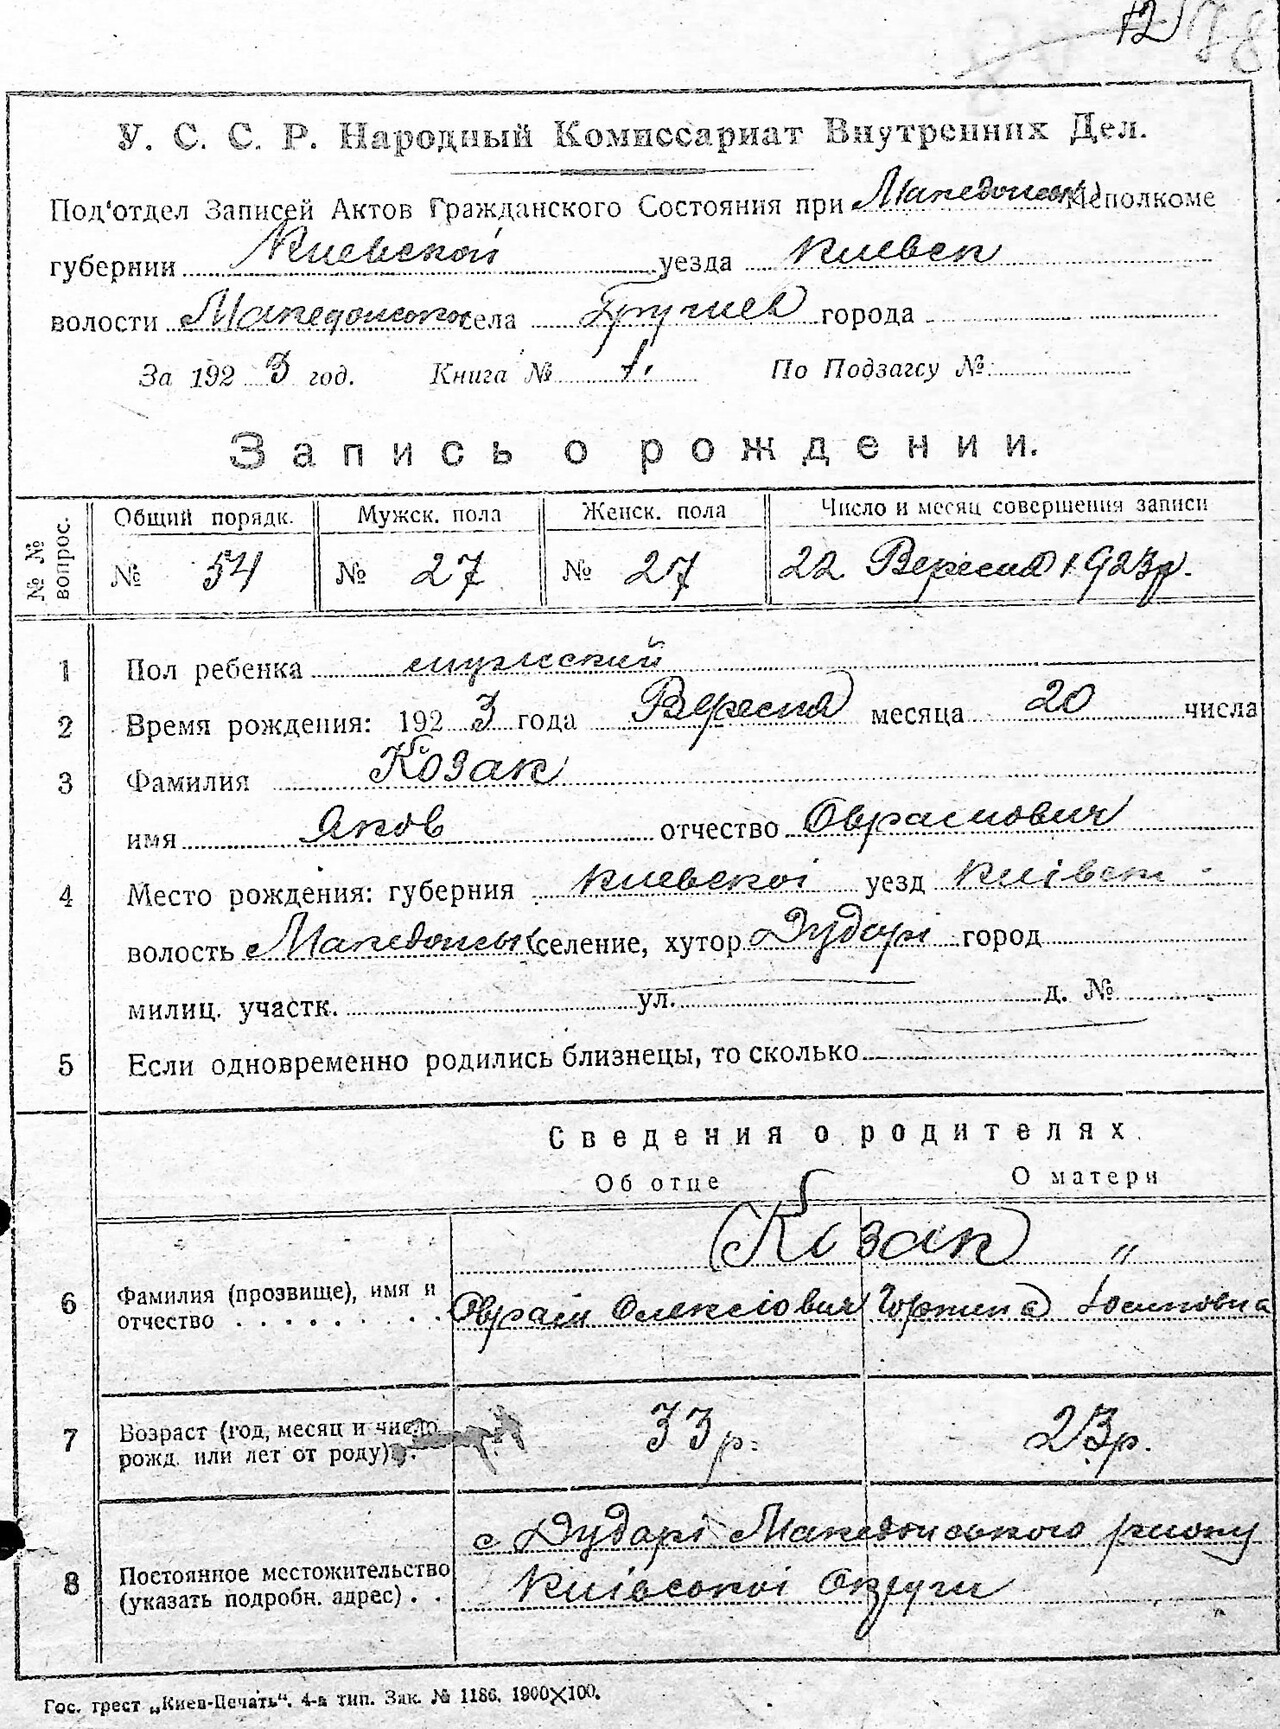 12
У. С. С. Р. Народный Комиссариат Внутренних Дел.
Под'отдел Записей Актов Гражданского Состояния при Македонськ. Исполкоме
губернии Киевской уезда Киевск
волости Македонской села Грушев города
За 1923 год. Книга № 1. По Подзагсу №
Запись о рождении.
№ № вопрос.
Общий порядк. Мужск. пола Женск. пола Число и месяц совершения записи
№ 54 № 27 № 27 22 Вересня 1923р.
1 Пол ребенка мужский
2 Время рождения: 1923 года Вересня месяца 20 числа
3 Фамилия Козак
имя Яков отчество Оврамович
4 Место рождения: губерния Киевскоі уезд Київск
волость Македонськ селение, хутор Дударі город
милиц. участк. ул. д. №
5 Если одновременно родились близнецы, то сколько
Сведения о родителях.
Об отце О матери
Козак "
6 Фамилия (прозвище), имя и
отчество Оврам Олексіович Осиповна
7 Возраст (год, месяц и число 33р. 23р.
рожд. или лет от роду)
с Дударі Македонського риону
8 Постоянное местожительство Київськоі Округи
(указать подробн. адрес)
Гос. трест „Киев-Печать". 4-я тип. Зак. № 1186. 1900×100.